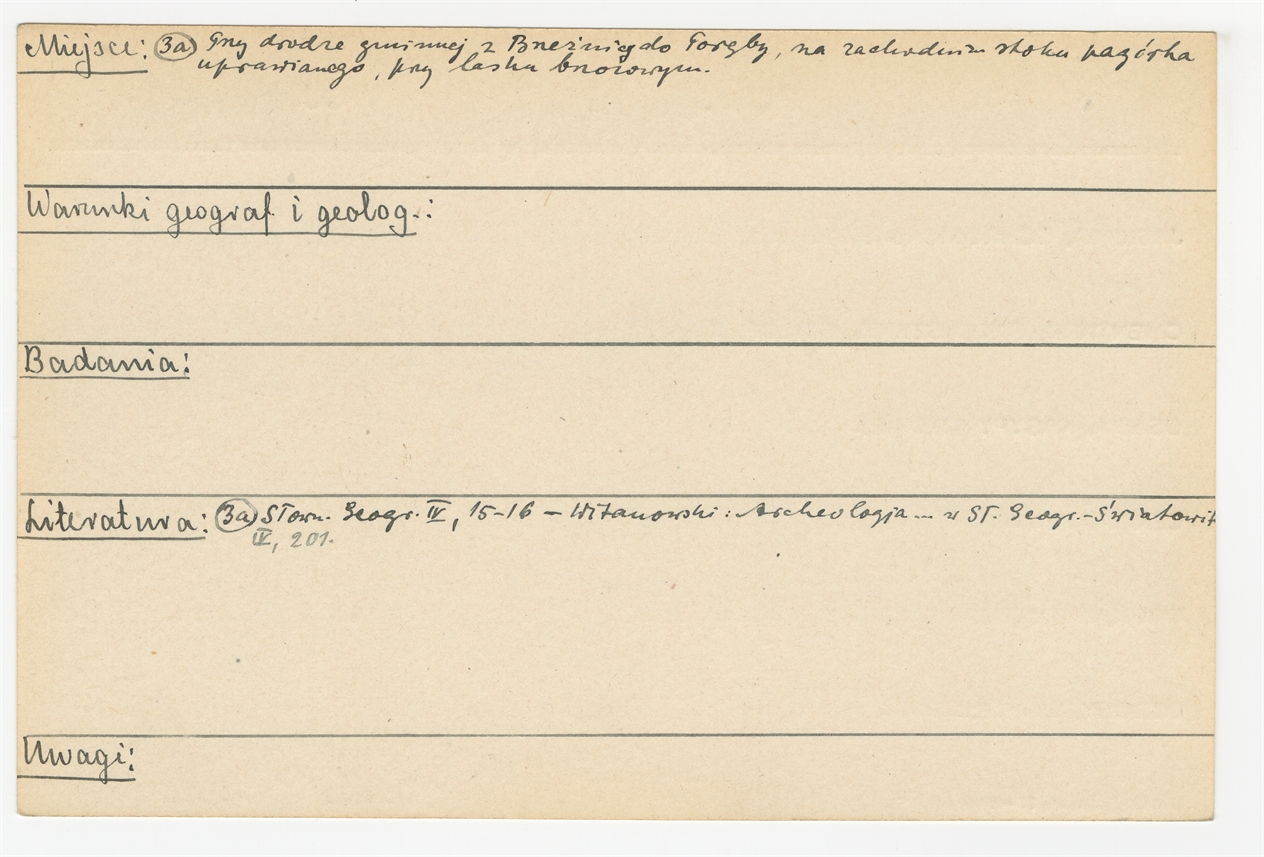 Miejsce: 3a Przy drodze gminnej z Brzeźnicy do Poręby, na zachodnim stoku pagórka
uprawianego, przy lasku brzozowym.
Warunki geograf. i geolog.:
Badania:
Literatura: 3a Słown. Geogr. IV, 15-16 – Witanowski: Archeologja ... w Sł. Geogr. - Światowit
IV, 201.
Uwagi: